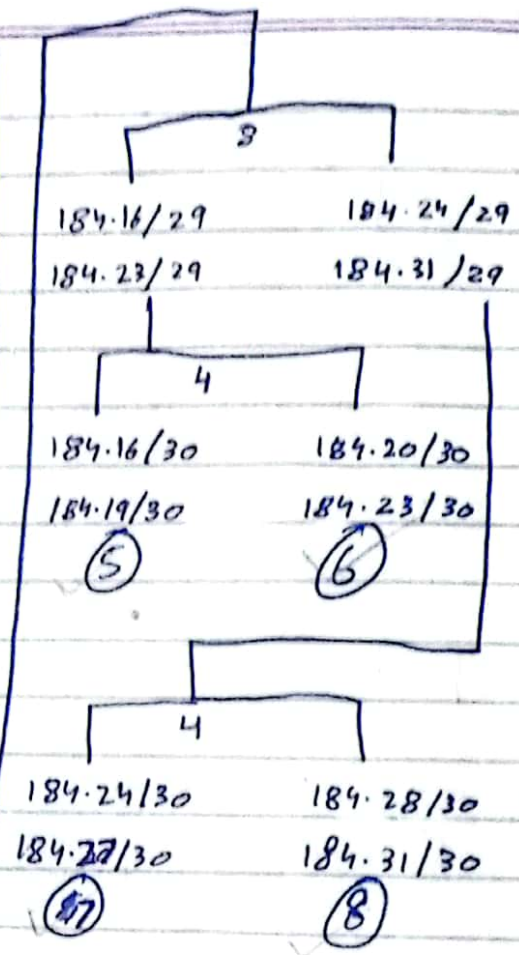 3
184.16/29 184.24/29
184.23/29 184.31/29
4
184.16/30 184.20/30
184.19/30 184.23/30
5 6
4
184.24/30 184.28/30
184.27/30 184.31/30
7 8